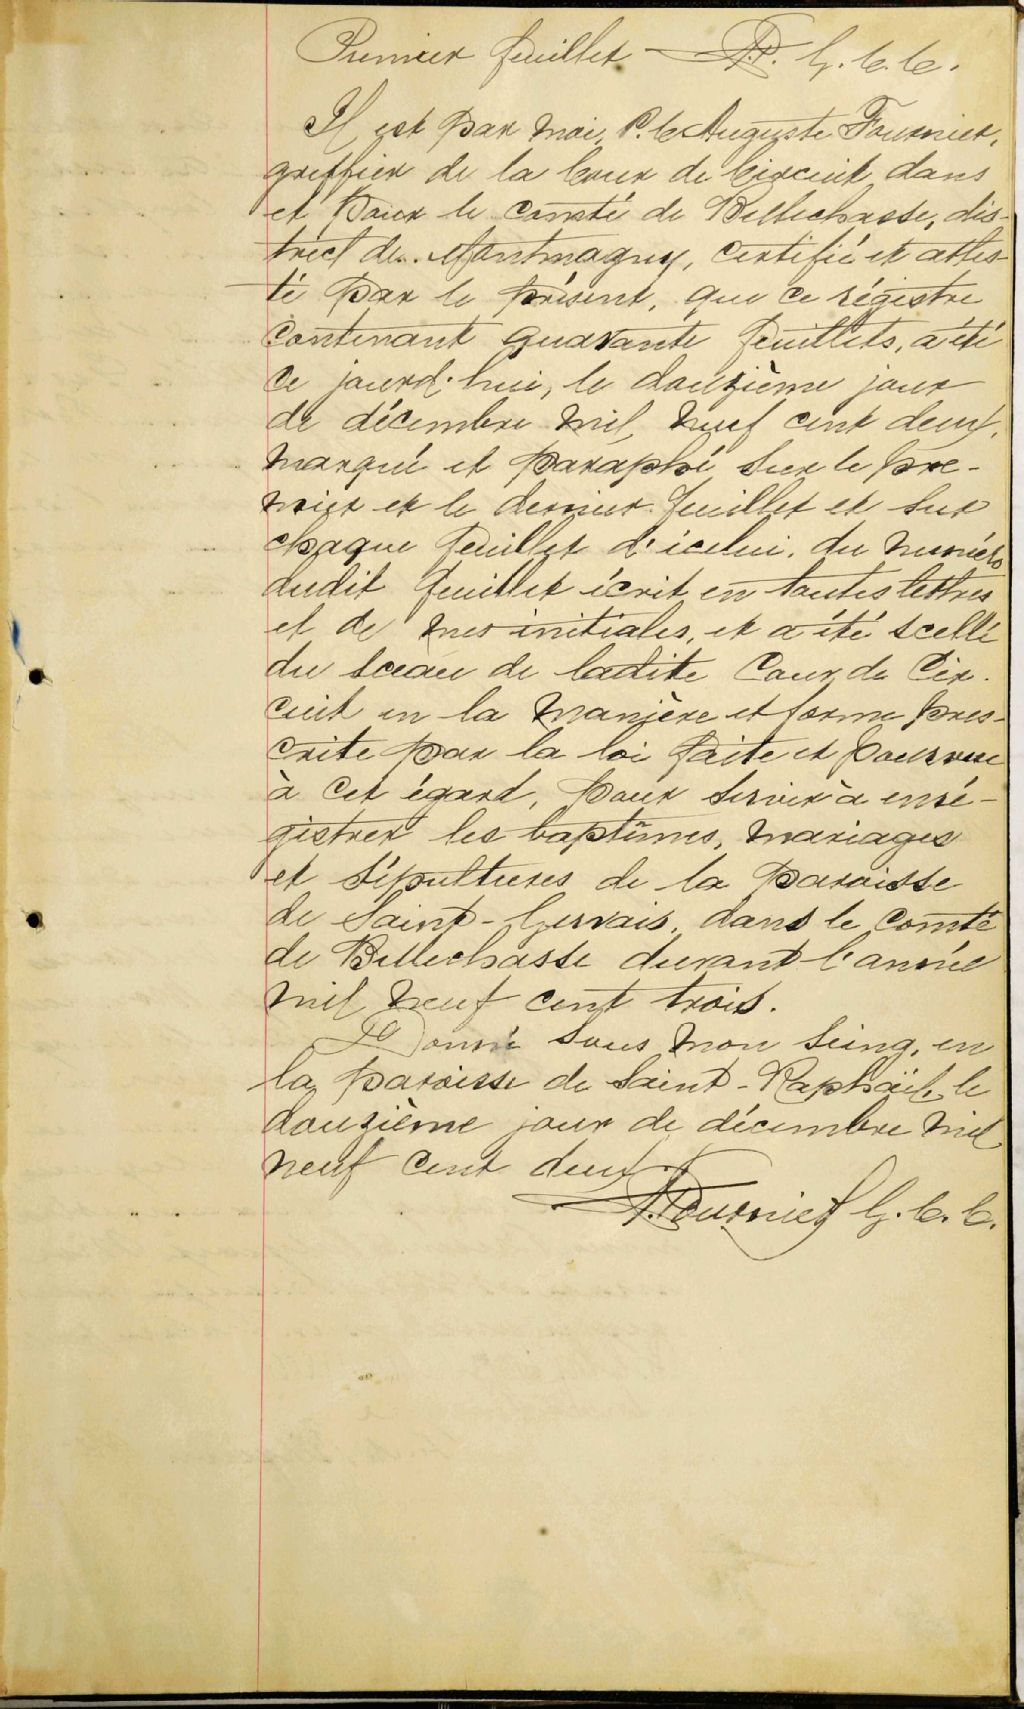 Premier feuillet — G. C. C.
Il est par moi, P. C. Auguste Fournier,
greffier de la Cour de Circuit dans
et pour le comté de Bellechasse, dis-
trict de Montmagny, certifié et attes-
té par le présent, que ce régistre
contenant quarante feuillets, a été
ce jourd'hui, le douzième jour
de décembre mil neuf cent deux,
marqué et paraphé sur le pre-
mier et le dernier feuillet et sur
chaque feuillet d'icelui, du numéro
dudit feuillet écrit en toutes lettres
et de mes initiales, et a été scellé
du sceau de ladite Cour de Cir-
cuit en la manière et forme pres-
crite par la loi faite et pourvue
à cet égard, pour servir à enré-
gistrer les baptêmes, mariages
et sépultures de la paroisse
de Saint-Gervais, dans le comté
de Bellechasse durant l'année
mil neuf cent trois.
Donné sous mon seing, en
la paroisse de Saint-Raphaël, le
douzième jour de décembre mil
neuf cent deux.
A. Fournier G. C. C.